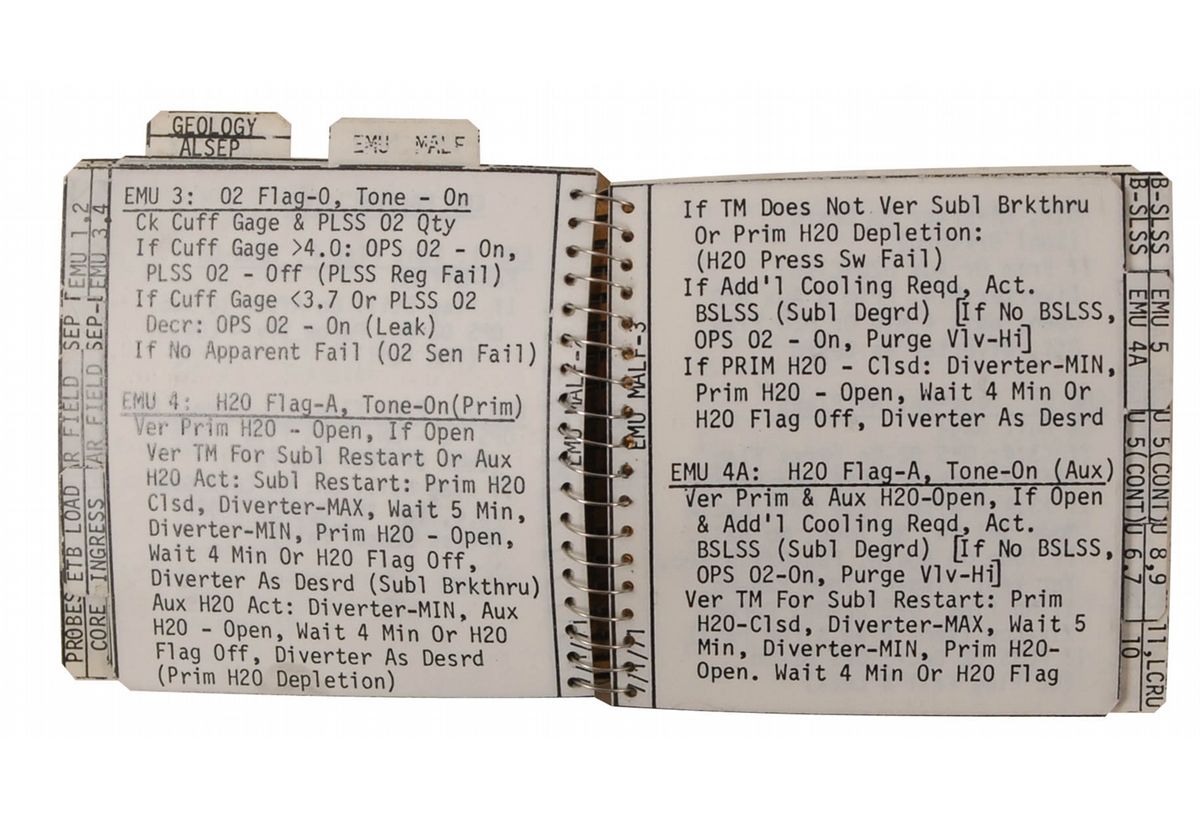 GEOLOGY
ALSEP
EMU MALF
EMU 3: O2 Flag-O, Tone - On
Ck Cuff Gage & PLSS O2 Qty
If Cuff Gage >4.0: OPS O2 - On,
PLSS O2 - Off (PLSS Reg Fail)
If Cuff Gage <3.7 Or PLSS O2
Decr: OPS O2 - On (Leak)
If No Apparent Fail (O2 Sen Fail)
EMU 4: H2O Flag-A, Tone-On(Prim)
Ver Prim H2O - Open, If Open
Ver TM For Subl Restart Or Aux
H2O Act: Subl Restart: Prim H2O
Clsd, Diverter-MAX, Wait 5 Min,
Diverter-MIN, Prim H2O - Open,
Wait 4 Min Or H2O Flag Off,
Diverter As Desrd (Subl Brkthru)
Aux H2O Act: Diverter-MIN, Aux
H2O - Open, Wait 4 Min Or H2O
Flag Off, Diverter As Desrd
(Prim H2O Depletion)
PROBES ETB LOAD AR FIELD SEP EMU 1,2
CORE INGRESS AR FIELD SEP- EMU 3,4
EMU MAL-2
EMU MALF-3
7/1/71
If TM Does Not Ver Subl Brkthru
Or Prim H2O Depletion:
(H2O Press Sw Fail)
If Add'l Cooling Reqd, Act.
BSLSS (Subl Degrd) [If No BSLSS,
OPS O2 - On, Purge Vlv-Hi]
If PRIM H2O - Clsd: Diverter-MIN,
Prim H2O - Open, Wait 4 Min Or
H2O Flag Off, Diverter As Desrd
EMU 4A: H2O Flag-A, Tone-On (Aux)
Ver Prim & Aux H2O-Open, If Open
& Add'l Cooling Reqd, Act.
BSLSS (Subl Degrd) [If No BSLSS,
OPS O2-On, Purge Vlv-Hi]
Ver TM For Subl Restart: Prim
H2O-Clsd, Diverter-MAX, Wait 5
Min, Diverter-MIN, Prim H2O-
Open. Wait 4 Min Or H2O Flag
B-SLSS EMU 4A U 5(CONT) 6,7 10
B-SLSS EMU 5 U 5(CONT) U 8,9 11,LCRU